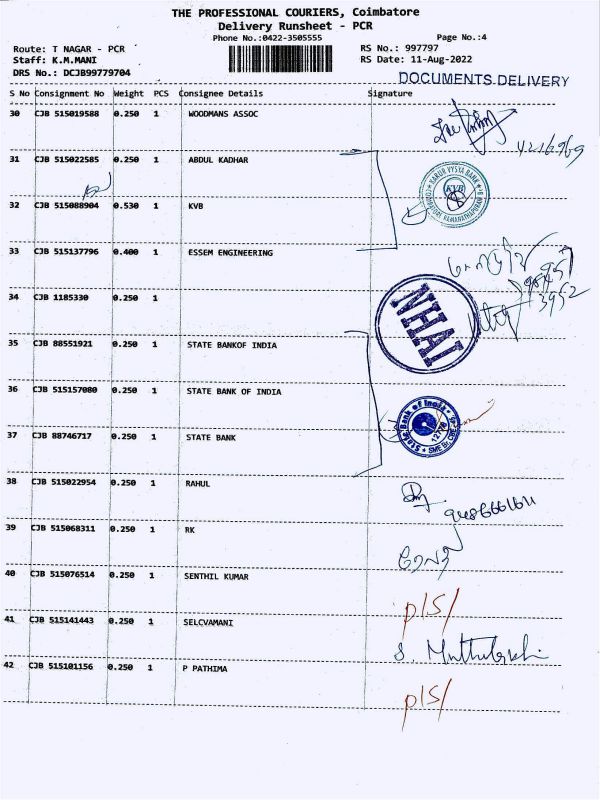 THE PROFESSIONAL COURIERS, Coimbatore
Delivery Runsheet - PCR
Phone No.:0422-3505555 Page No.:4
Route: T NAGAR - PCR RS No.: 997797
Staff: K.M.MANI RS Date: 11-Aug-2022
DRS No.: DCJB99779704 DOCUMENTS DELIVERY
S No Consignment No Weight PCS Consignee Details Signature
30 CJB 515019588 0.250 1 WOODMANS ASSOC
31 CJB 515022585 0.250 1 ABDUL KADHAR
KARUR VYSYA BANK
KVB
32 CJB 515088904 0.530 1 KVB
33 CJB 515137796 0.400 1 ESSEM ENGINEERING
34 CJB 1185330 0.250 1
NHAI
35 CJB 88551921 0.250 1 STATE BANKOF INDIA
36 CJB 515157080 0.250 1 STATE BANK OF INDIA
State Bank of India
37 CJB 88746717 0.250 1 STATE BANK
38 CJB 515022954 0.250 1 RAHUL
39 CJB 515068311 0.250 1 RK
40 CJB 515076514 0.250 1 SENTHIL KUMAR
41 CJB 515141443 0.250 1 SELCVAMANI
42 CJB 515101156 0.250 1 P PATHIMA